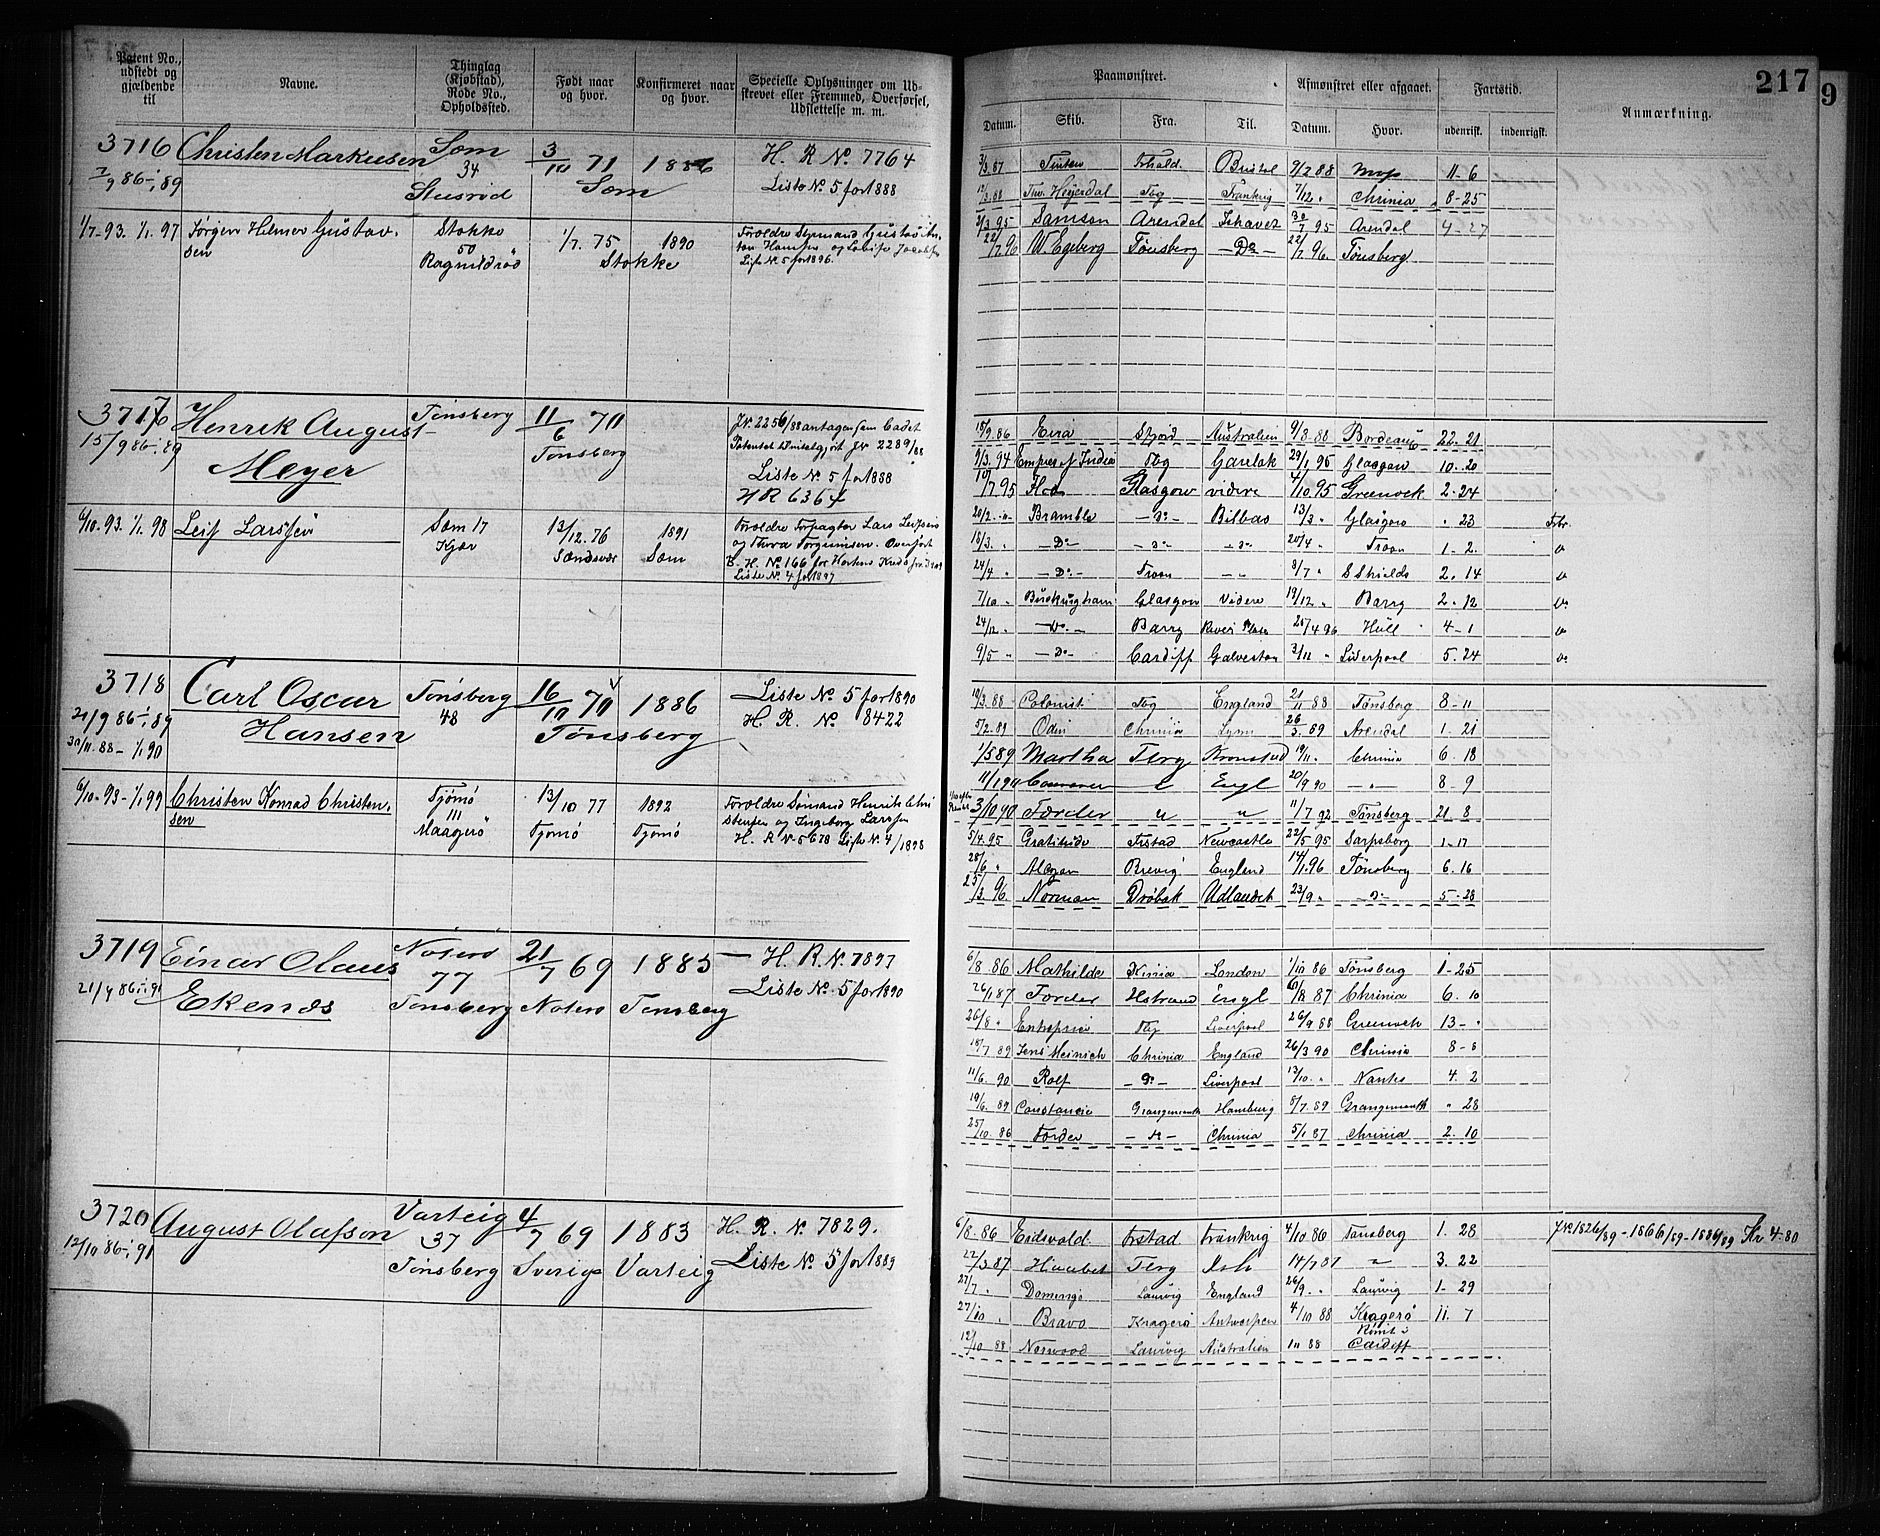 Patent No., udstedt og gjældende til
Navne.
Thinglag (Kjøbstad), Rode No., Opholdssted.
Født naar og hvor.
Konfirmeret naar og hvor.
Specielle Oplysninger om Udskrevet eller Fremmed, Overførsel, Udslettelse m. m.
3716 Christen Markusen Sem 3/10 71 1886 H. R No. 7764
7/9 86-1/1 89 34 Sem Liste No. 5 for 1888
1/7-93. 1/1. 97 Jørgen Hilmer Gustav- Stokke 1/7. 75 1890 Forældre Sømand
sen 50 Stokke
Ragnildrød Liste No. 5 for 1896.
3717 Henrik August Tønsberg 11/6 70 J.No. 2256/88 antagen som Cadet
15/9 86-1/1 89 Meyer Tønsberg
Liste No. 5 for 1888
H R 6364
6/10. 93. 1/1. 98 Leif Larssen Sem 17 13/12. 76 1891 Forældre Forpagter Lars
Kjær Sem og Thora Torgrimsen. Overført
B. H. No. 166 for Hortens Kreds
Liste No. 4 for 1897
3718 Carl Oscar Tønsberg 16/10 70 1886 Liste No. 5 for 1890
21/9 86-1/1 89 Hansen 48 Tønsberg H. R. No. 8422
30/11. 88-1/1 90
6/10-93-1/1 99 Christen Konrad Christen- Tjømø 13/10 77 1892 Forældre Sømand Henrik Chri
sen III Tjømø Tjømø stensen og Ingeborg Larssen
Maagerø H. R No 5678 Liste No. 4/1898
3719 Einar Olaus Nøterø 21/7 69 1885 H. R. No. 7897
21/9 86-1/1 91 Ekenæs 77 Liste No. 5 for 1890
Tønsberg Nøterø Tønsberg
3720 August Olafson Varteig 4/7 69 1883 H. R. No. 7829.
12/10 86-1/1 91 37 Liste No. 5 for 1889
Tønsberg Sverige Varteig
217
9
Paamønstret.
Afmønstret eller afgaaet.
Fartstid.
Anmærkning.
Datum. Skib. Fra. Til. Datum. Hvor. udenrisk. indenrigsk.
3/3. 87 Bristol 9/2 88 11-6
12/3. 88 Thv. Heyerdal Tbg Frankrig 7/12 " Chrinia 8-25
2/3 95 Samson Arendal Ishavet 30/7 95 Arendal 4-27
22/7. 96 W. Egeberg Tønsberg -Do- 22/7. 96. Tønsberg
15/9. 86 Eira Australien 9/8 88 Bordeaux 22-21
9/3. 94 Empres of India Tbg 29/1 95 Glasgow 10.20
10/7 95 Glasgow videre 4/10 95 Greenock 2-24
20/2 Bramble -Do- Bilbao 13/3 " Glasgow " 23
18/3. " -Do- -Do- -Do- 20/4 " Troon 1-2.
24/4 " -Do- Troon 8/7 " S Shields 2. 14
7/10 " Buckingham Glasgow Videre 19/12 " Barry 2-12
24/12 " -Do- Barry River Plate 25/4 96 Hull 4-1
9/5 " -Do- Cardiff Galveston 3/11 " Liverpool 5. 24
10/3. 88 Colonist Tbg England 21/11 88 Tønsberg 8-11
5/2. 89 Odin Chrinia Lynn 26/3. 89 Arendal 1. 21
1/5 89 Martha Tbrg Kronstad 19/11. Chrinia 6. 18
11/1 90 Engl 20/9 90 8-9
3/10 90 Færder " " 11/7 92 Tønsberg 21. 8
5/4. 95 Gratitude Frstad Newcastle 22/5 95 Sarpsborg 1-17
28/6 " Brevig England 14/1. 96 Tønsberg 6. 16
25/3. 96 Norman Drøbak Udlandet 23/9 " -Do- 5-28
6/8. 86 Mathilde London 1/10 86 Tønsberg 1-25
26/1 87 Engl 87 Chrinia 6. 10
26/8 " Entreprise Tbg Liverpool 26/9 88 Greenock 13-"
18/7 89 Jens Meinich Chrinia England 26/3 90 Chrinia 8-8
11/6. 90 Rolf -Do- Liverpool 13/10. " Nantes 4. 2
19/6. 89 Constancia Grangemouth Hamburg 8/7. 89 Grangemouth " 28
25/10. 86 -Do- Chrinia 5/1 87 Chrinia 2. 10
6/8. 86 Eidsvold Frstad Frankrig 4/10. 86 Tønsberg 1. 28 Kr 4.80
22/3 87 Haabet Tbrg 14/7 87 " 3. 22
27/7 " Domingo Laurvig England 26/9. " Laurvig 1-29
27/10 " Bravo Kragerø Antwerpen 4/10 88 Kragerø 11. 7
12/10 88 Norwood Laurvig Australien 88 Rømt i Cardiff